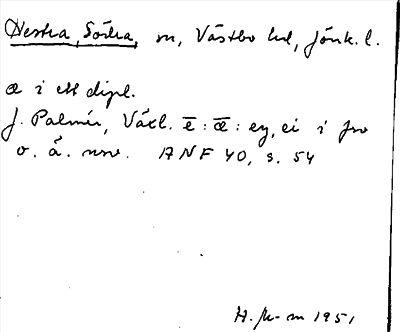 Hestra, Södra, sn, Västbo hd, Jönk. l.
æ i ett dipl.
J. Palmér, Växl. ē : ǣ : ey, ei i fno
o. ä. nsv. ANF 40, s. 54
H. 1951